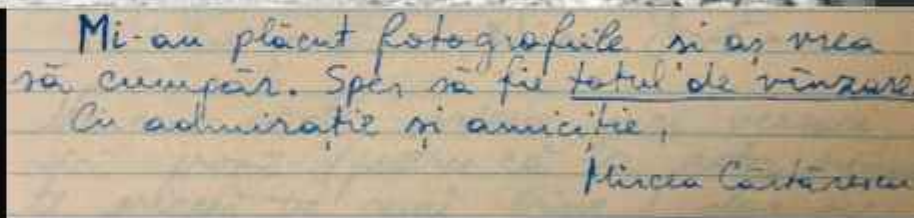 Mi-au plăcut fotografiile și aș vrea
să cumpăr. Sper să fie totul de vînzare
Cu admirație și amiciție,
Mircea Cărtărescu